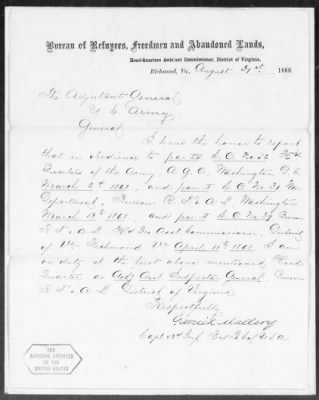 Bureau of Refugees, Freedmen and Abandoned Lands,
Head-Quarters Assistant Commissioner, District of Virginia,
Richmond, Va., August 1866.
The Adjutant General
U. S. Army
General,
I have the honor to report
that in obedience to par S.O. No 52 Head
Quarters of the Army, A.G.O. Washington D.C.
March 2d and par I S.O. No. War
Department, Bureau R. F. & A. L. Washington
March 13th and par I S.O. No 29 Bureau
R. F. & A. L. Hd Qrs Asst Commissioner, District
of Va. Richmond Va April 11th I am
on duty at the last above mentioned Head
Quarters as Actg Asst Inspector General, Bureau
R. F. & A. L. District of Virginia
Respectfully
Garrick Mallery
Capt 43d Inf Bvt Lt Col U.S.A.
THE
NATIONAL ARCHIVES
OF THE
UNITED STATES